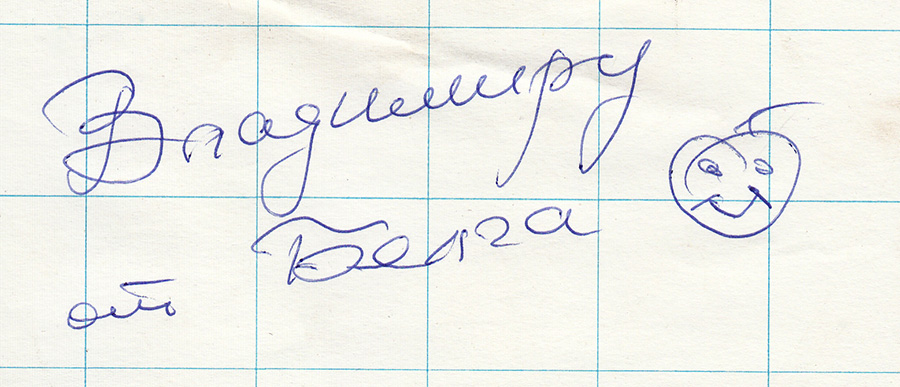 Владимиру
от Белга